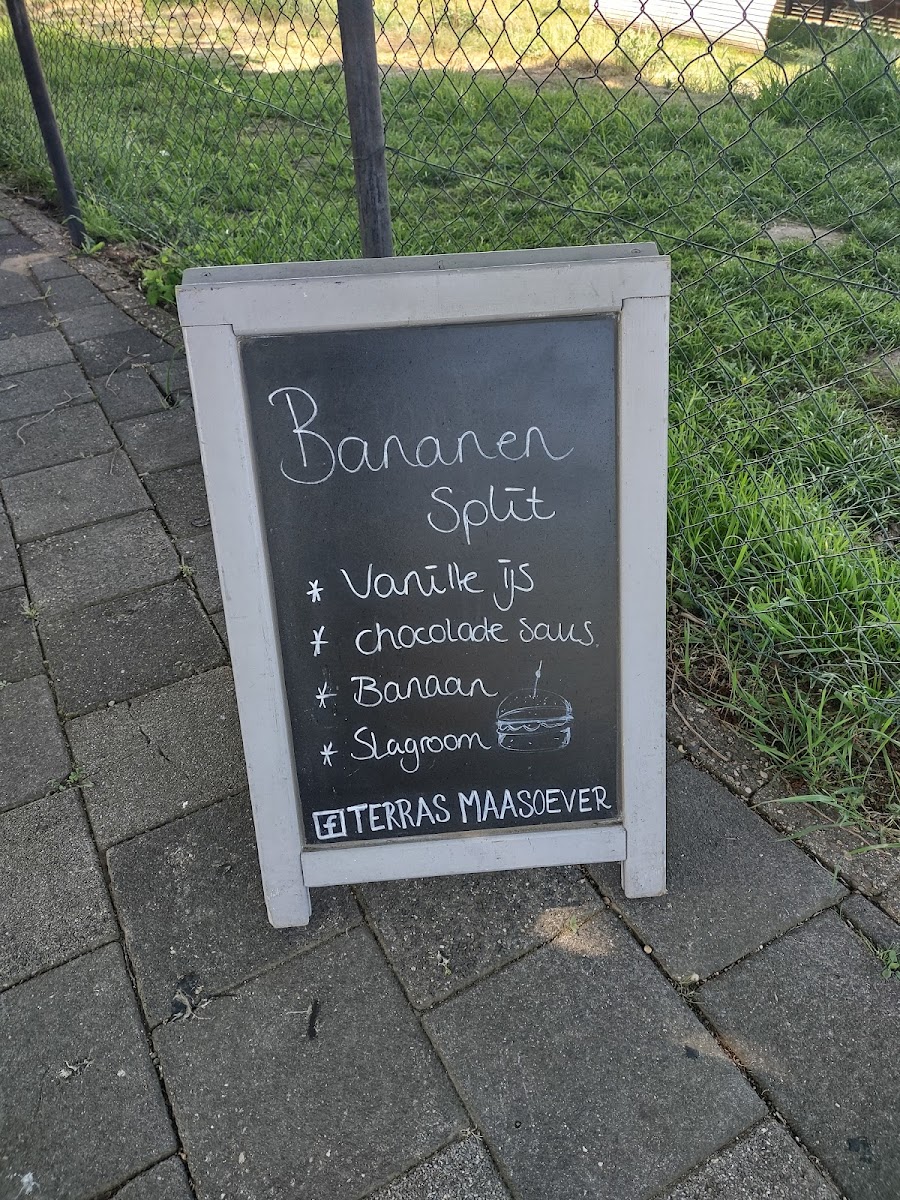 Bananen
Split
* Vanille ijs
* chocolade saus
* Banaan
* Slagroom
f TERRAS MAASOEVER